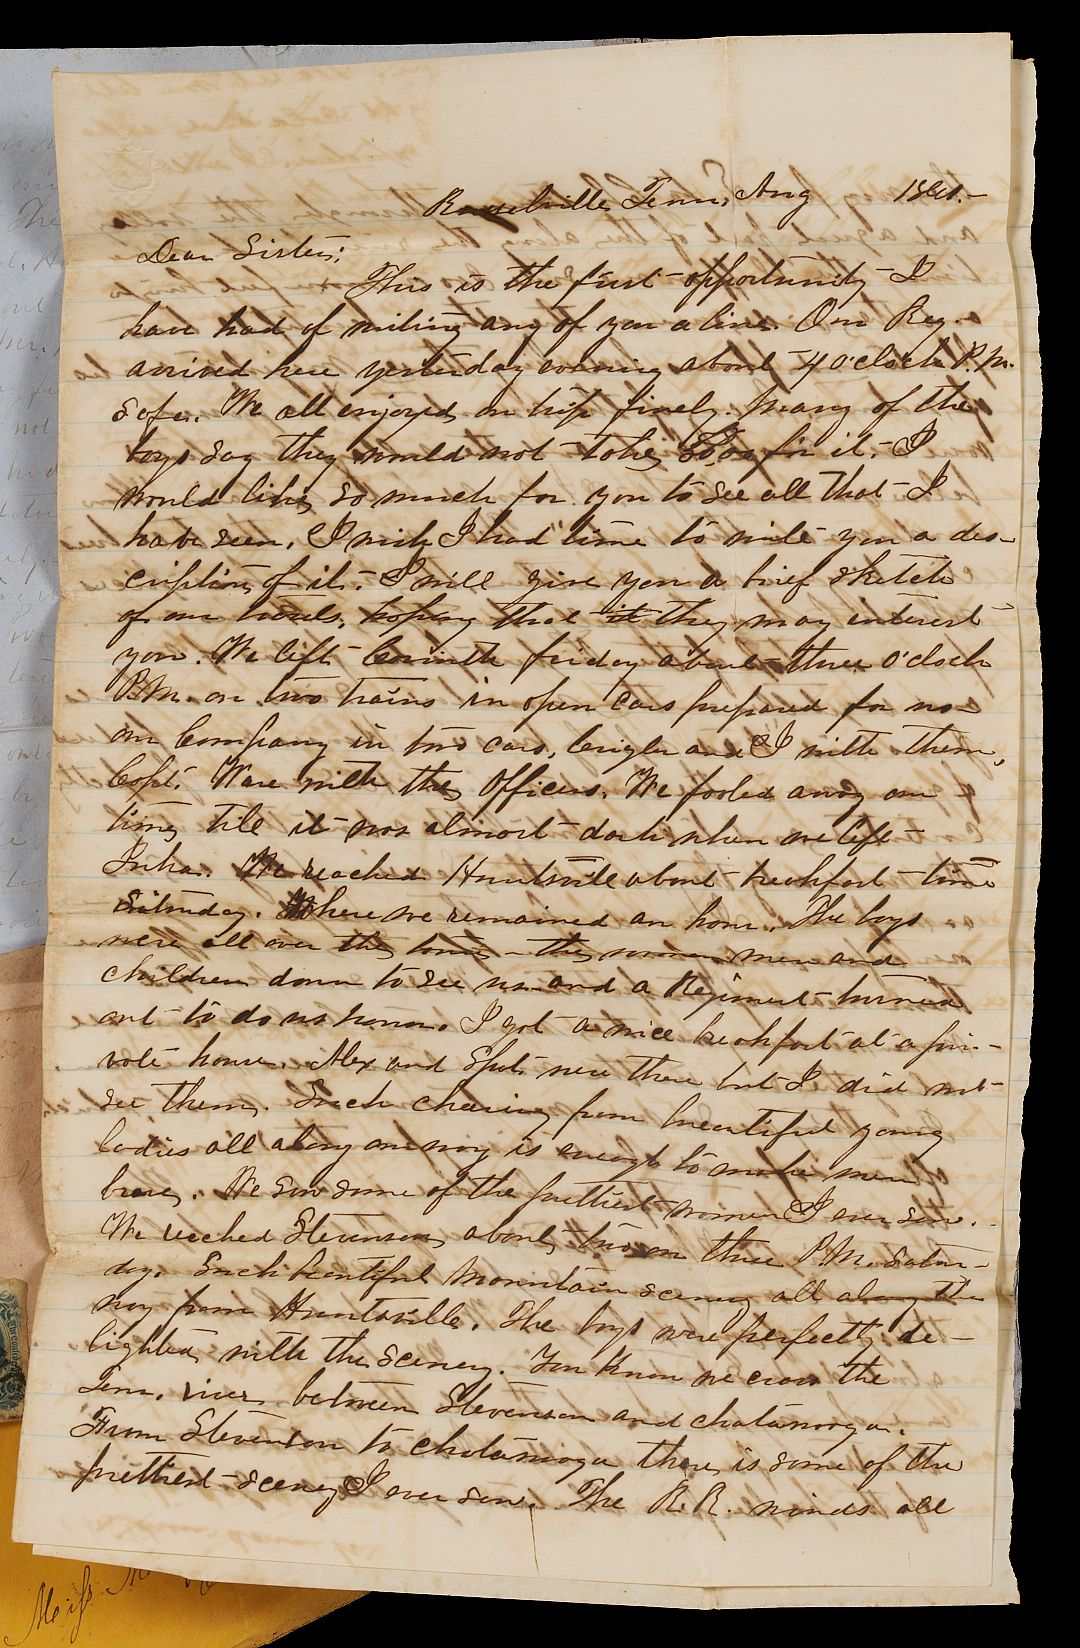 Russelville, Tenn, Aug 1861.-
Dear Sister;
This is the first opportunity I
have had of writing any of you a line. Our Reg.
arrived here yesterday evening about 4 o'clock P.M.
safe. We all enjoyed our trip finely. Many of the
boys say they would not take $50,00 for it. I
would like so much for you to see all that I
have seen. I wish I had time to write you a des-
cription of it. I will give you a brief sketch
of our travels, hoping that it they may interest
you. We left Corinth friday about three o'clock
P.M. on two trains in open cars prepared for us
our Company in two cars, and I with them,
Capt. Ware with the Officers. We fooled away our
time till it was almost dark when we left
Iuka. We reached Huntsville about breakfast time
Saturday. Where we remained an hour. The boys
were all over the town - the women men and
children down to see us and a Regiment turned
out to do us honor. I got a nice breakfast at a pri-
vate house. Alex and were there but I did not
see them. Such cheering from beautiful young
ladies all along our way is enough to make men
brave. We saw some of the prettiest women I ever saw.
We reached Stevenson about two or three P.M. Satur-
day. Such beautiful mountain scenery all along the
way from Huntsville. The boys were perfectly de-
lighted with the scenery. You know we cross the
Tenn. river between Stevenson and Chatanooga.
From Stevenson to Chatanooga there is some of the
prettiest scenery I ever saw. The R.R. winds all
Miss M